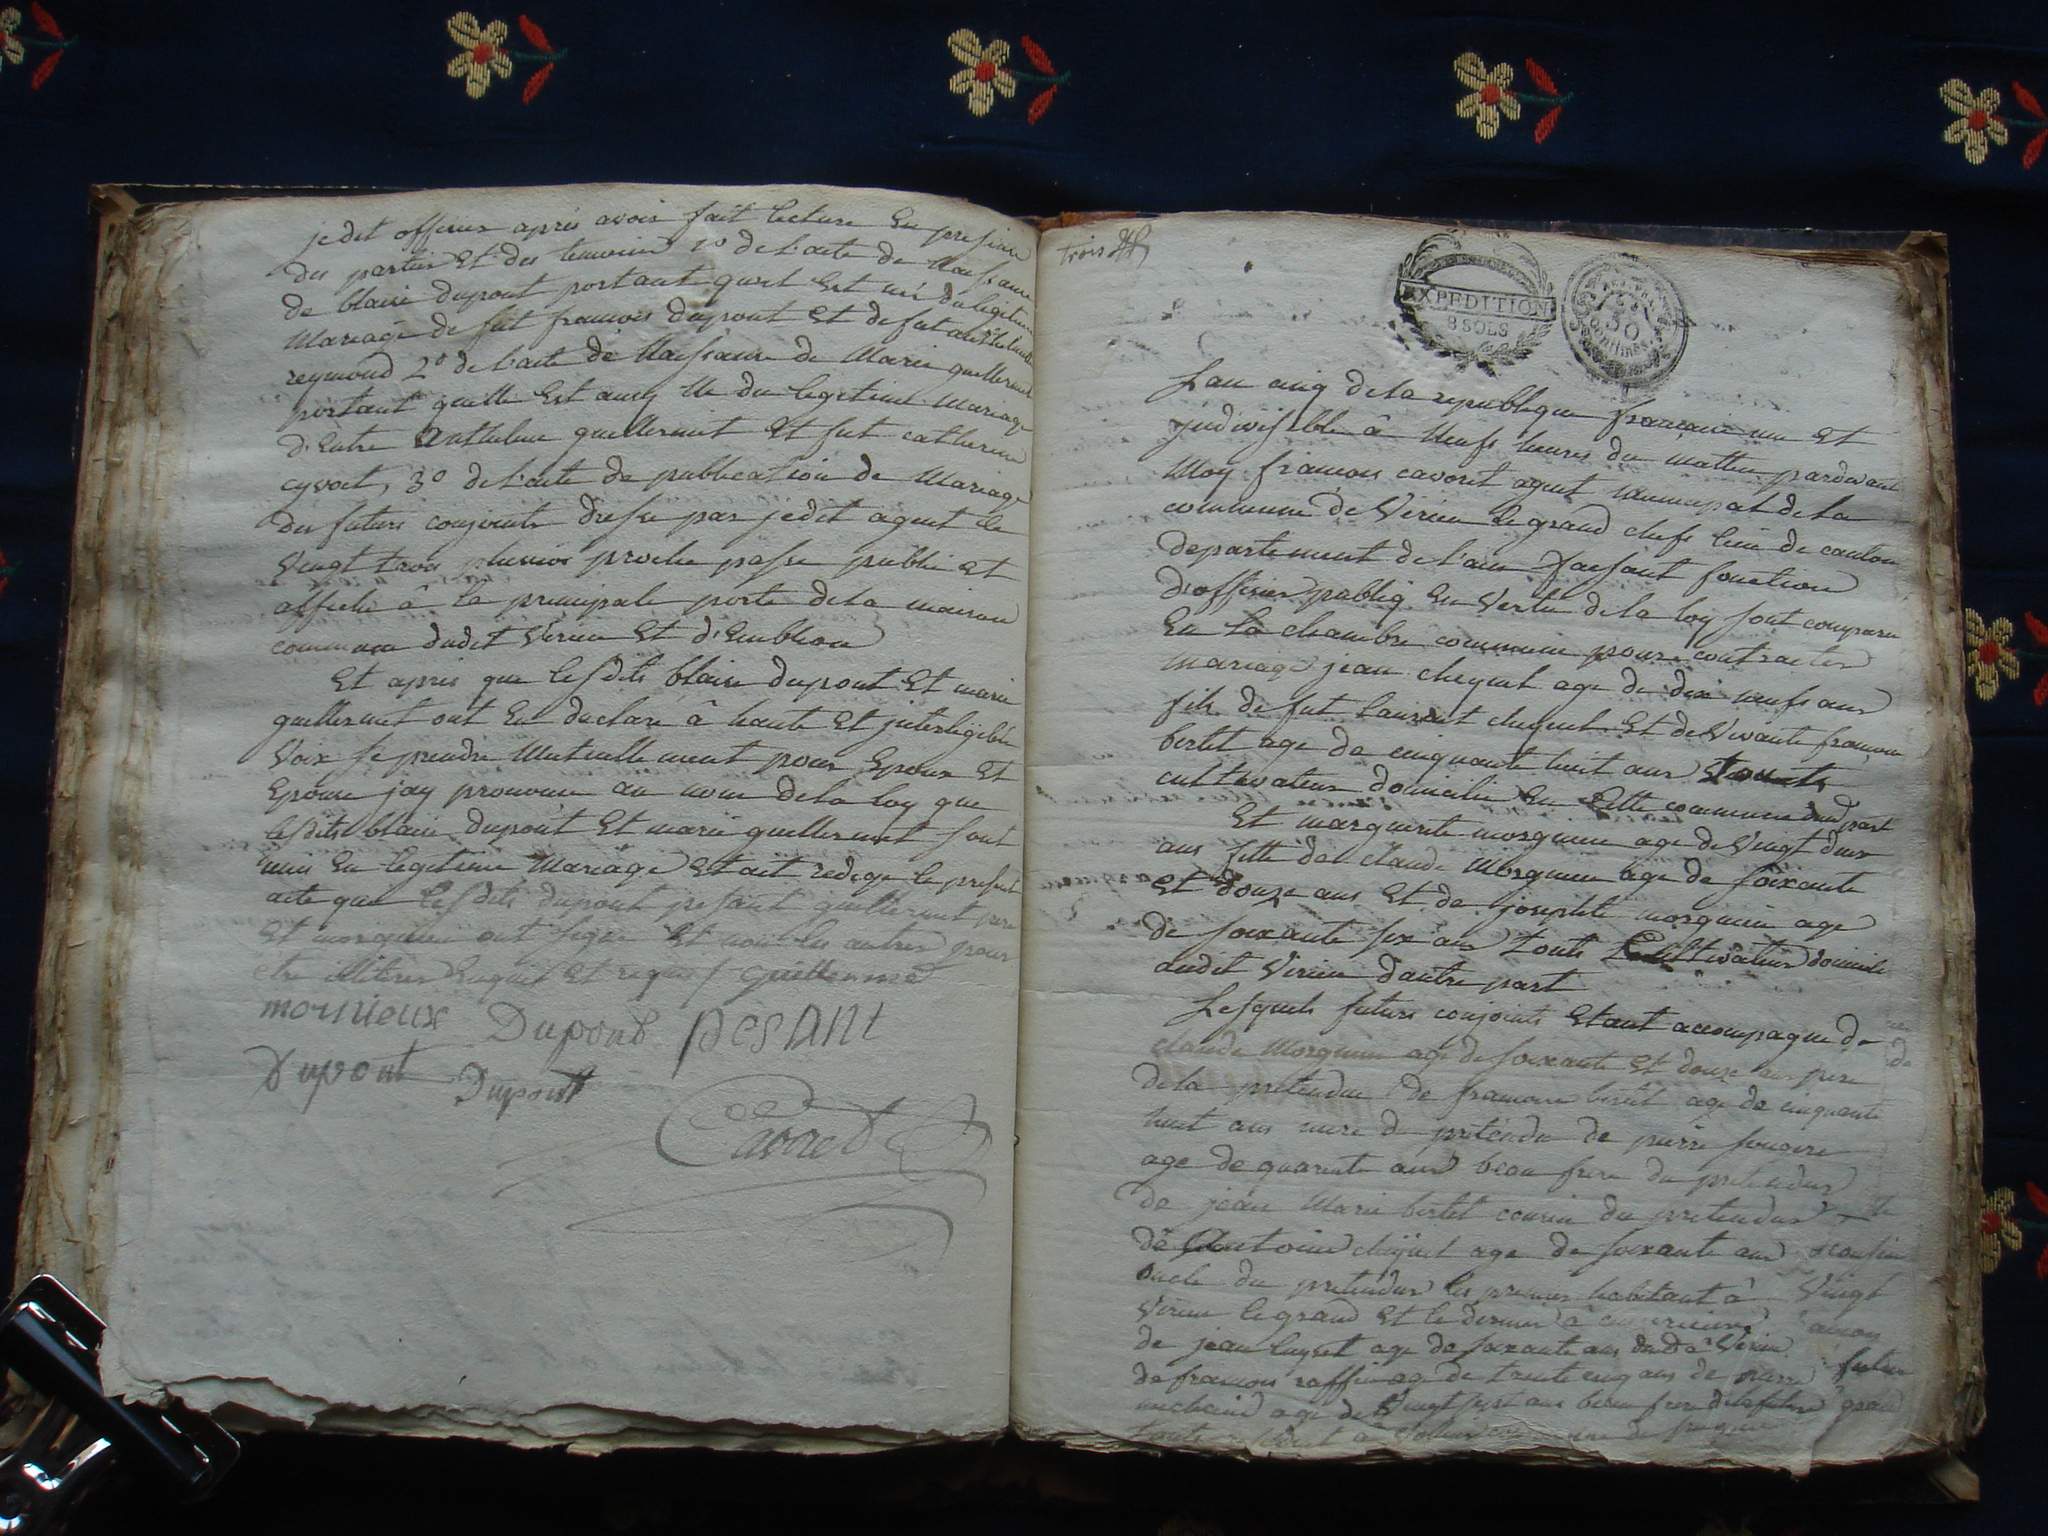 je dit officier apres avoir fait lecture en presence
des parties et des temoins 1o de l'acte de naissance
de blaise dupont portant quil est né du legitime
mariage de fut francois dupont et de fut
reymond 2o de l'acte de naissance de marie guillermet
portant quelle est aussy né du legitime mariage
d'entre anthelme guillermet et fut catherine
cyvoct, 3o de l'acte de publication de mariage
des futurs conjoints dresse par je dit agent le
vingt trois pluviose proche passe publié et
affiche a la principale porte de la maison
commune dudit virieu et d'
et apres que lesdits blaise dupont et marie
guillermet ont eu declare a haute et jntelligible
voix se prendre mutuellement pour epoux et
epouse jay prononce au nom de la loy que
lesdits blaise dupont et marie guillermet sont
unis en legitime mariage et ait redige le present
acte que lesdits dupont pesant guillermet pere
et morgnieu ont signe et non les autres pour
etre illiteres enquis et requis / guillermet
mournieux Dupond pesant
Dupont Dupontt
Cavoret
trois
EXPEDITION
8 SOLS
50
Centimes
L'an cinq de la republique francaise une et
jndivisible a neufs heures du mattin pardevant
moy francois cavoret agent municipal de la
commune de virieu le grand chefs lieu de canton
departement de l'ain faisant fonction
d'officier publiq en vertu de la loy sont comparu
en la chambre commune pour contracter
mariage jean chequet age de dix neufs ans
fils de fut laurent chequet et de vivante francoise
bertet age de cinquante huit ans touts
cultivateur domicilie en cette commune dund part
et marguerite morgnieu age de vingt deux
ans fille de claude morgnieu age de soixante
et douze ans et de josephte morgnieu age
de soixante six ans touts cultivateur domicilie
audit virieu dautre part
Lesquels futurs conjoints etant accompagne de
claude morgnieu age de soixante et douze ans pere
de la pretendue de francoise bertet age de cinquante
huit ans mere du pretendu de pierre fougere
age de quarente ans beau frere du pretendu
de jean marie bertet cousin du pretendu
de antoine chequet age de soixante ans
oncle du pretendu les premiers habitant a
virieu le grand et le dernier a
de jean luyset age de soixante ans dudit virieu
de francois raffin age de trente cinq ans de pierre
michaud age de vingt sept ans beau frere de la future